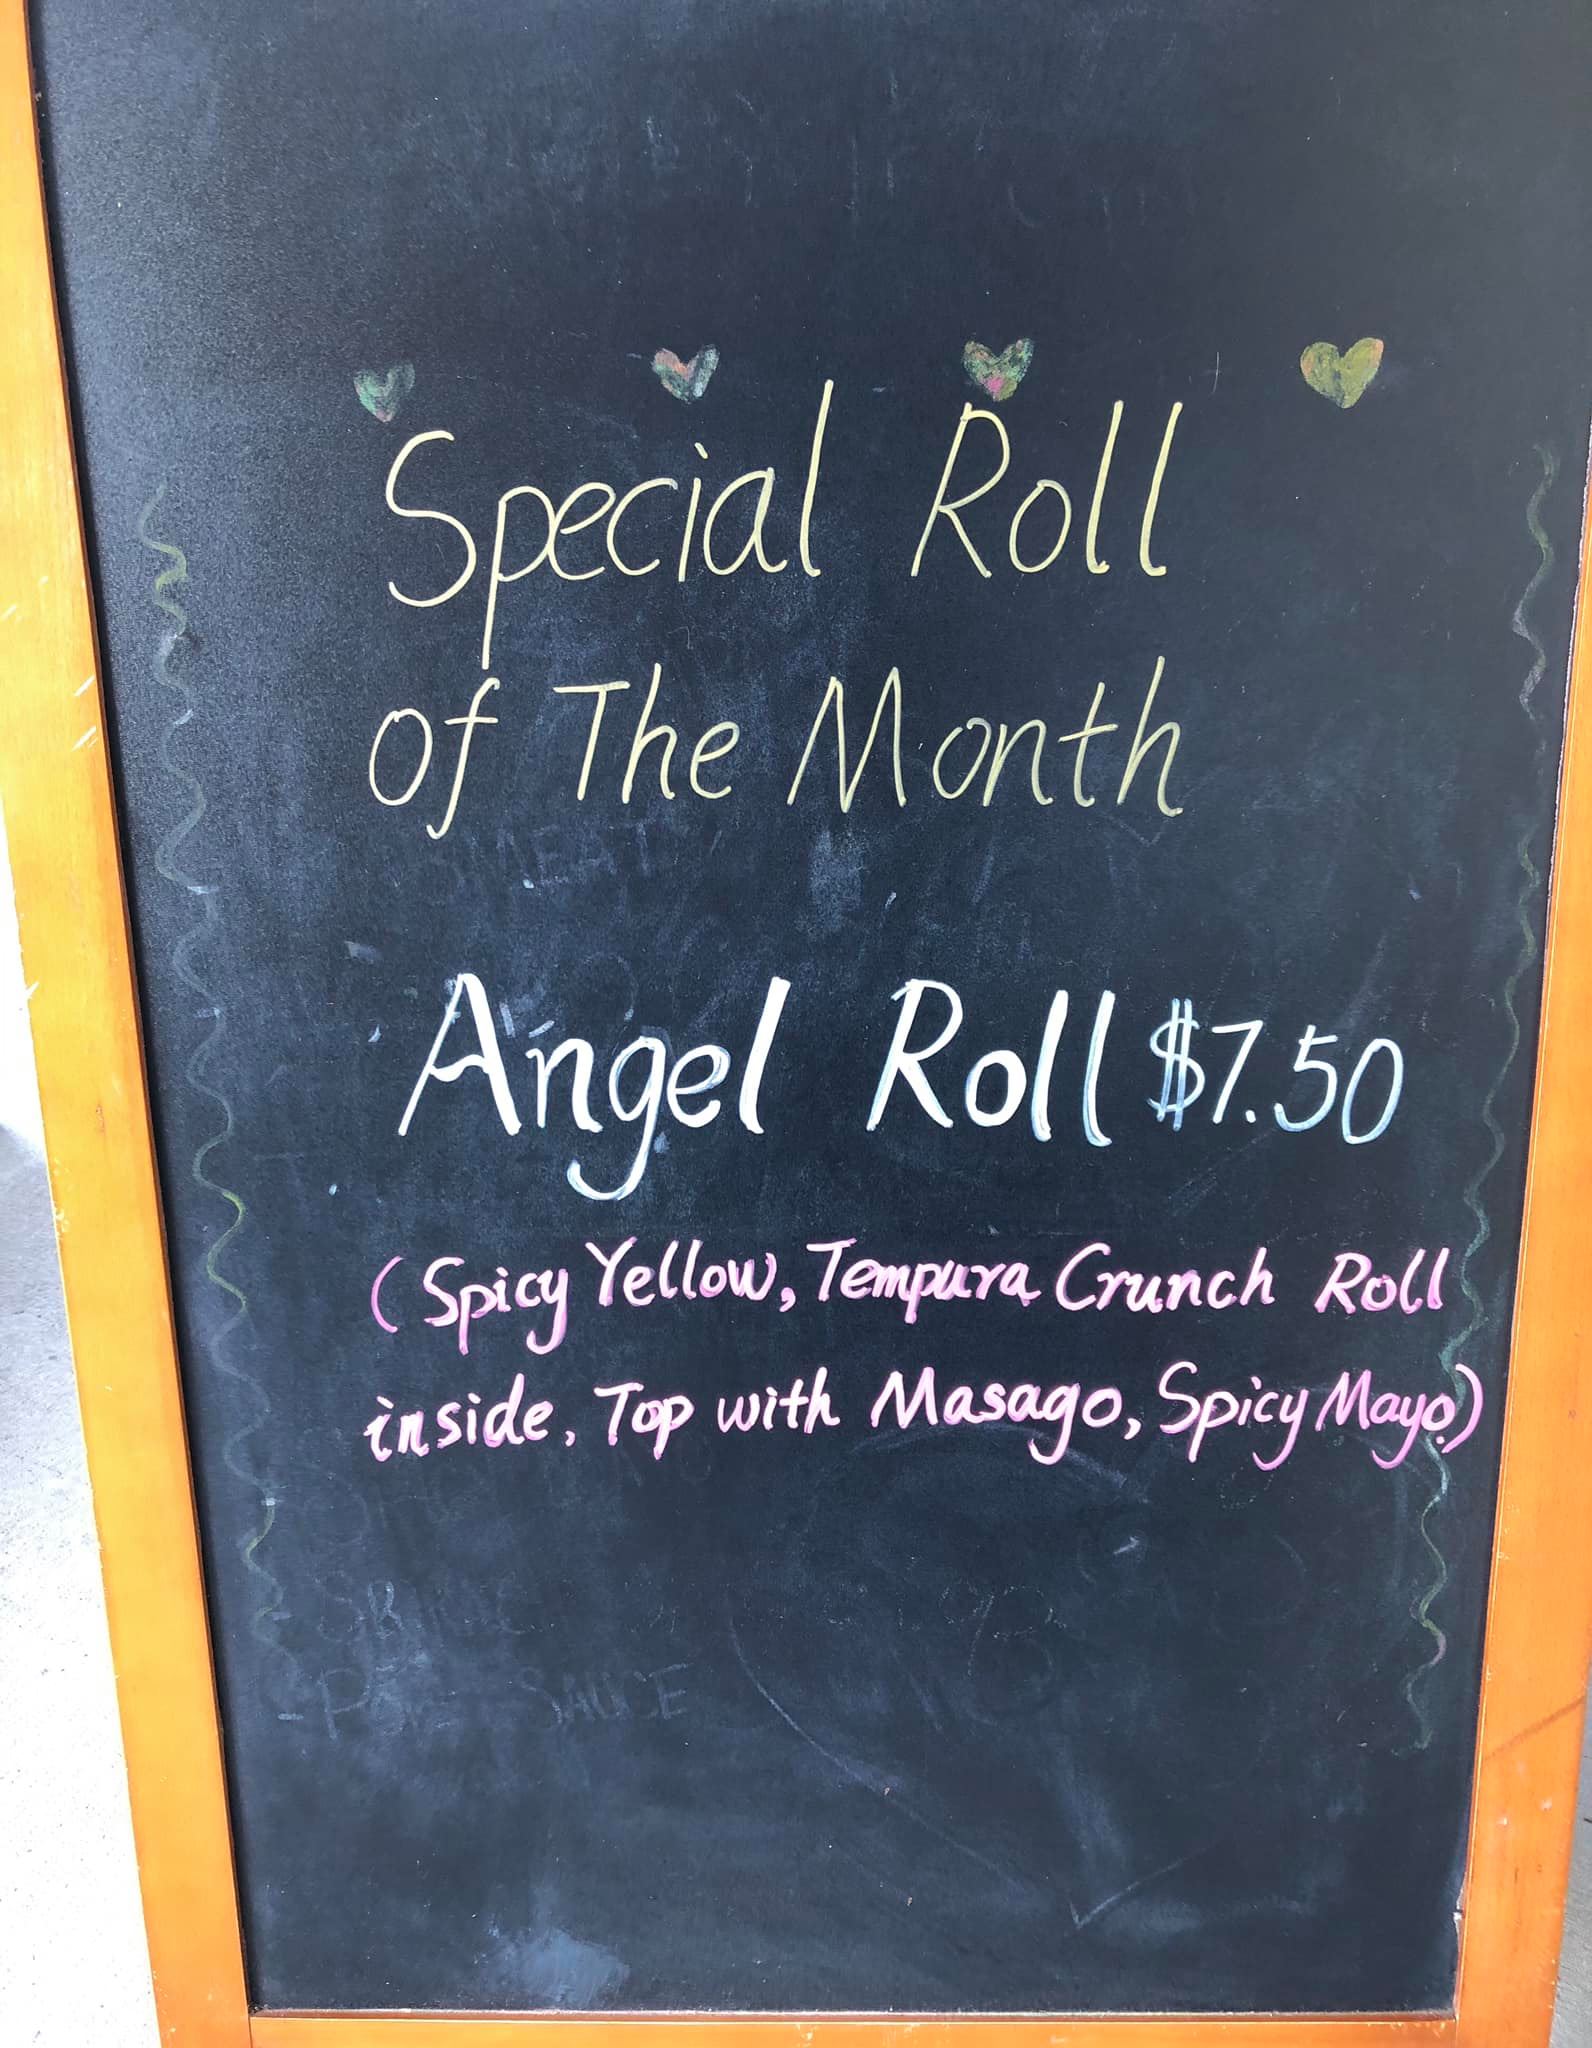 Special Roll
of The Month
Angel Roll $7.50
(Spicy Yellow, Tempura Crunch Roll
inside, Top with Masago, Spicy Mayo)
SAUCE